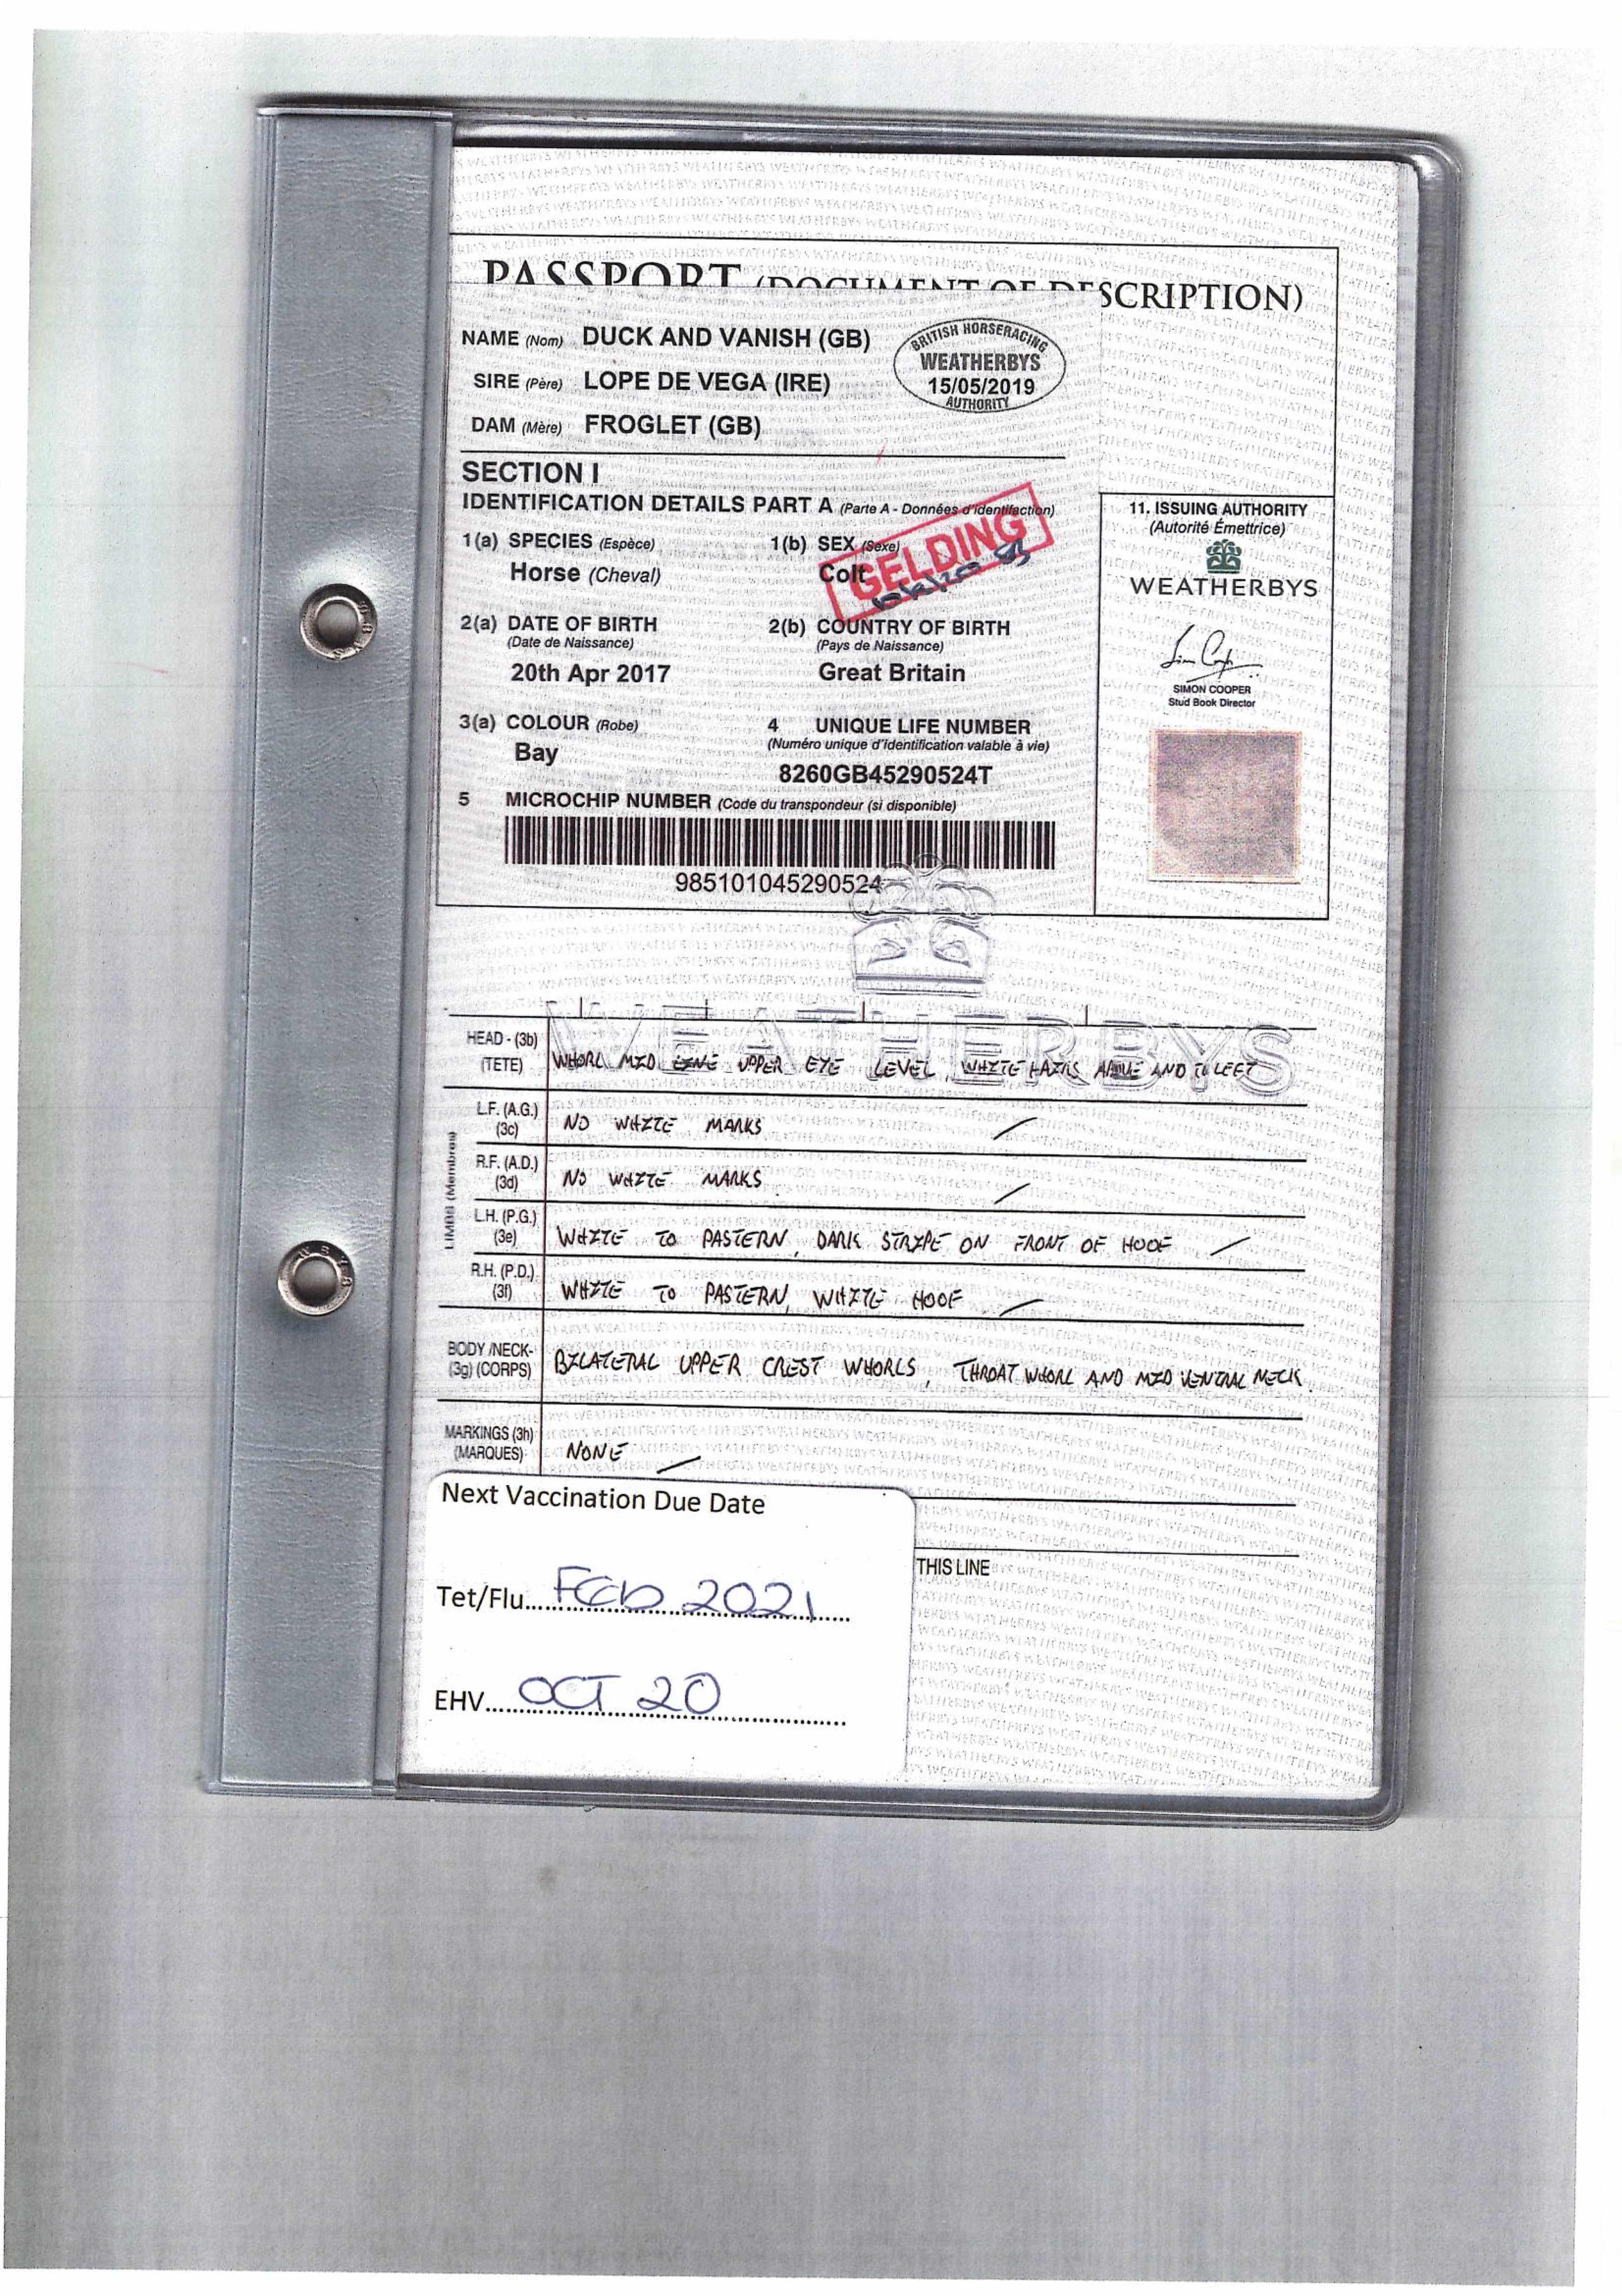 PASSPORT (DOCUMENT OF DESCRIPTION)
NAME (Nom) DUCK AND VANISH (GB)
SIRE (Père) LOPE DE VEGA (IRE)
DAM (Mère) FROGLET (GB)
BRITISH HORSERACING
WEATHERBYS
15/05/2019
AUTHORITY
SECTION I
IDENTIFICATION DETAILS PART A (Parte A - Données d'identifaction)
1(a) SPECIES (Espèce)
Horse (Cheval)
1(b) SEX (Sexe)
Colt
GELDING
2(a) DATE OF BIRTH
(Date de Naissance)
20th Apr 2017
2(b) COUNTRY OF BIRTH
(Pays de Naissance)
Great Britain
3(a) COLOUR (Robe)
Bay
4 UNIQUE LIFE NUMBER
(Numéro unique d'identification valable à vie)
8260GB45290524T
5 MICROCHIP NUMBER (Code du transpondeur (si disponible)
985101045290524
11. ISSUING AUTHORITY
(Autorité Émettrice)
WEATHERBYS
SIMON COOPER
Stud Book Director
WEATHERBYS
HEAD - (3b)
(TETE)
WHORL MID LINE UPPER EYE LEVEL, WHITE HAIRS ABOVE AND TO LEFT
LIMBS (Membres)
L.F. (A.G.)
(3c)
NO WHITE MARKS
R.F. (A.D.)
(3d)
NO WHITE MARKS
L.H. (P.G.)
(3e)
WHITE TO PASTERN, DARK STRIPE ON FRONT OF HOOF
R.H. (P.D.)
(3f)
WHITE TO PASTERN, WHITE HOOF
BODY /NECK-
(3g) (CORPS)
BILATERAL UPPER CREST WHORLS, THROAT WHORL AND MID VENTRAL NECK.
MARKINGS (3h)
(MARQUES)
NONE
THIS LINE
Next Vaccination Due Date
Tet/Flu Feb 2021
EHV OCT 20